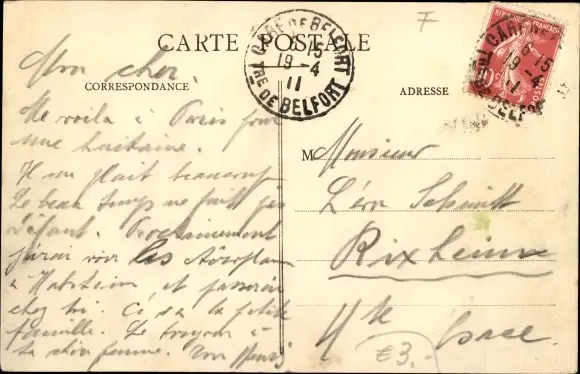 CARTE POSTALE
CORRESPONDANCE
ADRESSE
GARE DE BELFORT
6 15
19 - 4
11
TRE DE BELFORT
F
10 c
POSTES
Mon cher.
Me voilà à Paris pour
une huitaine.
Il me plait beaucoup
Le beau temps ne fait pas
défaut. Prochainement
j'irai voir les Aéroplanes
à et passerai
chez toi. à la petite
famille. Le à
ta chère femme. Ton Henri
M Monsieur
Léon Schmitt
Rixheim
Hte Alsace.
€3.-